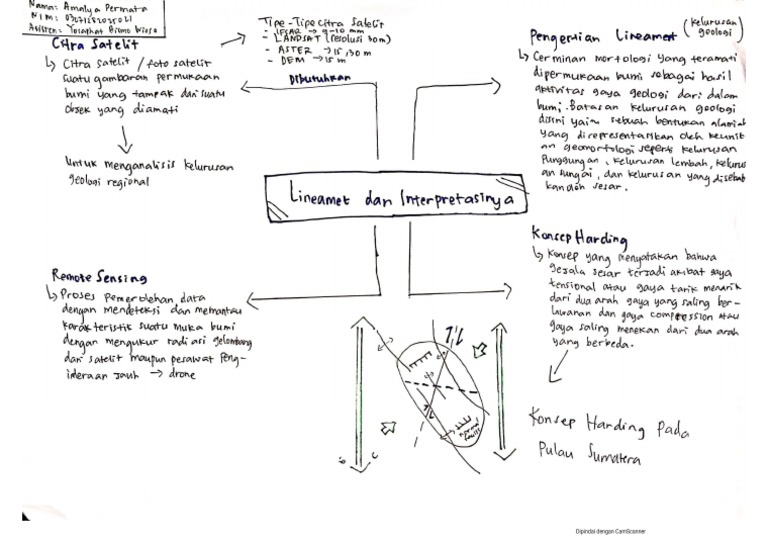 Nama: Amalya Permata
NIM: 03071282025021
Asisten: Yosaphat Bismo Wiroso
Citra Satelit
↳ Citra satelit / foto satelit
suatu gambaran permukaan
bumi yang tampak dari suatu
objek yang diamati
Untuk menganalisis kelurusan
geologi regional
Tipe-Tipe Citra Satelit
- IFSAR → 9-10 mm
- LANDSAT (resolusi 30m)
- ASTER → 15, 30 m
- DEM → 15 m
Dibutuhkan
Pengertian Lineament (kelurusan geologi)
↳ Cerminan morfologi yang teramati
dipermukaan bumi sebagai hasil
aktivitas gaya geologi dari dalam
bumi. Batasan kelurusan geologi
disini yaitu sebuah bentukan alamiah
yang direpresentasikan oleh keunik
an geomorfologi seperti kelurusan
Punggungan, kelurusan lembah, kelurus
an sungai, dan kelurusan yang disebab
kan oleh sesar.
Lineamet dan Interpretasinya
Remote Sensing
↳ Proses pemerolehan data
dengan mendeteksi dan memantau
karakteristik suatu muka bumi
dengan mengukur radiasi gelombang
dari satelit maupun pesawat Peng-
inderaan Jauh → drone
Konsep Harding
↳ Konsep yang menyatakan bahwa
gejala sesar terjadi akibat gaya
tensional atau gaya tarik menarik
dari dua arah gaya yang saling ber-
lawanan dan gaya compression atau
gaya saling menekan dari dua arah
yang berbeda.
Konsep Harding Pada
Pulau Sumatera
normal
faults
Dipindai dengan CamScanner